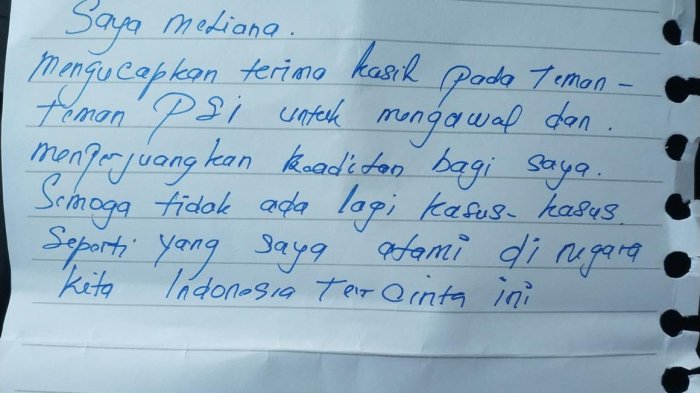 Saya Meliana.
mengucapkan terima kasih pada Teman-
teman PSi untuk mengawal dan.
memperjuangkan keadilan bagi saya.
Semoga tidak ada lagi kasus-kasus
Seperti yang saya alami di negara
kita Indonesia Ter Cinta ini